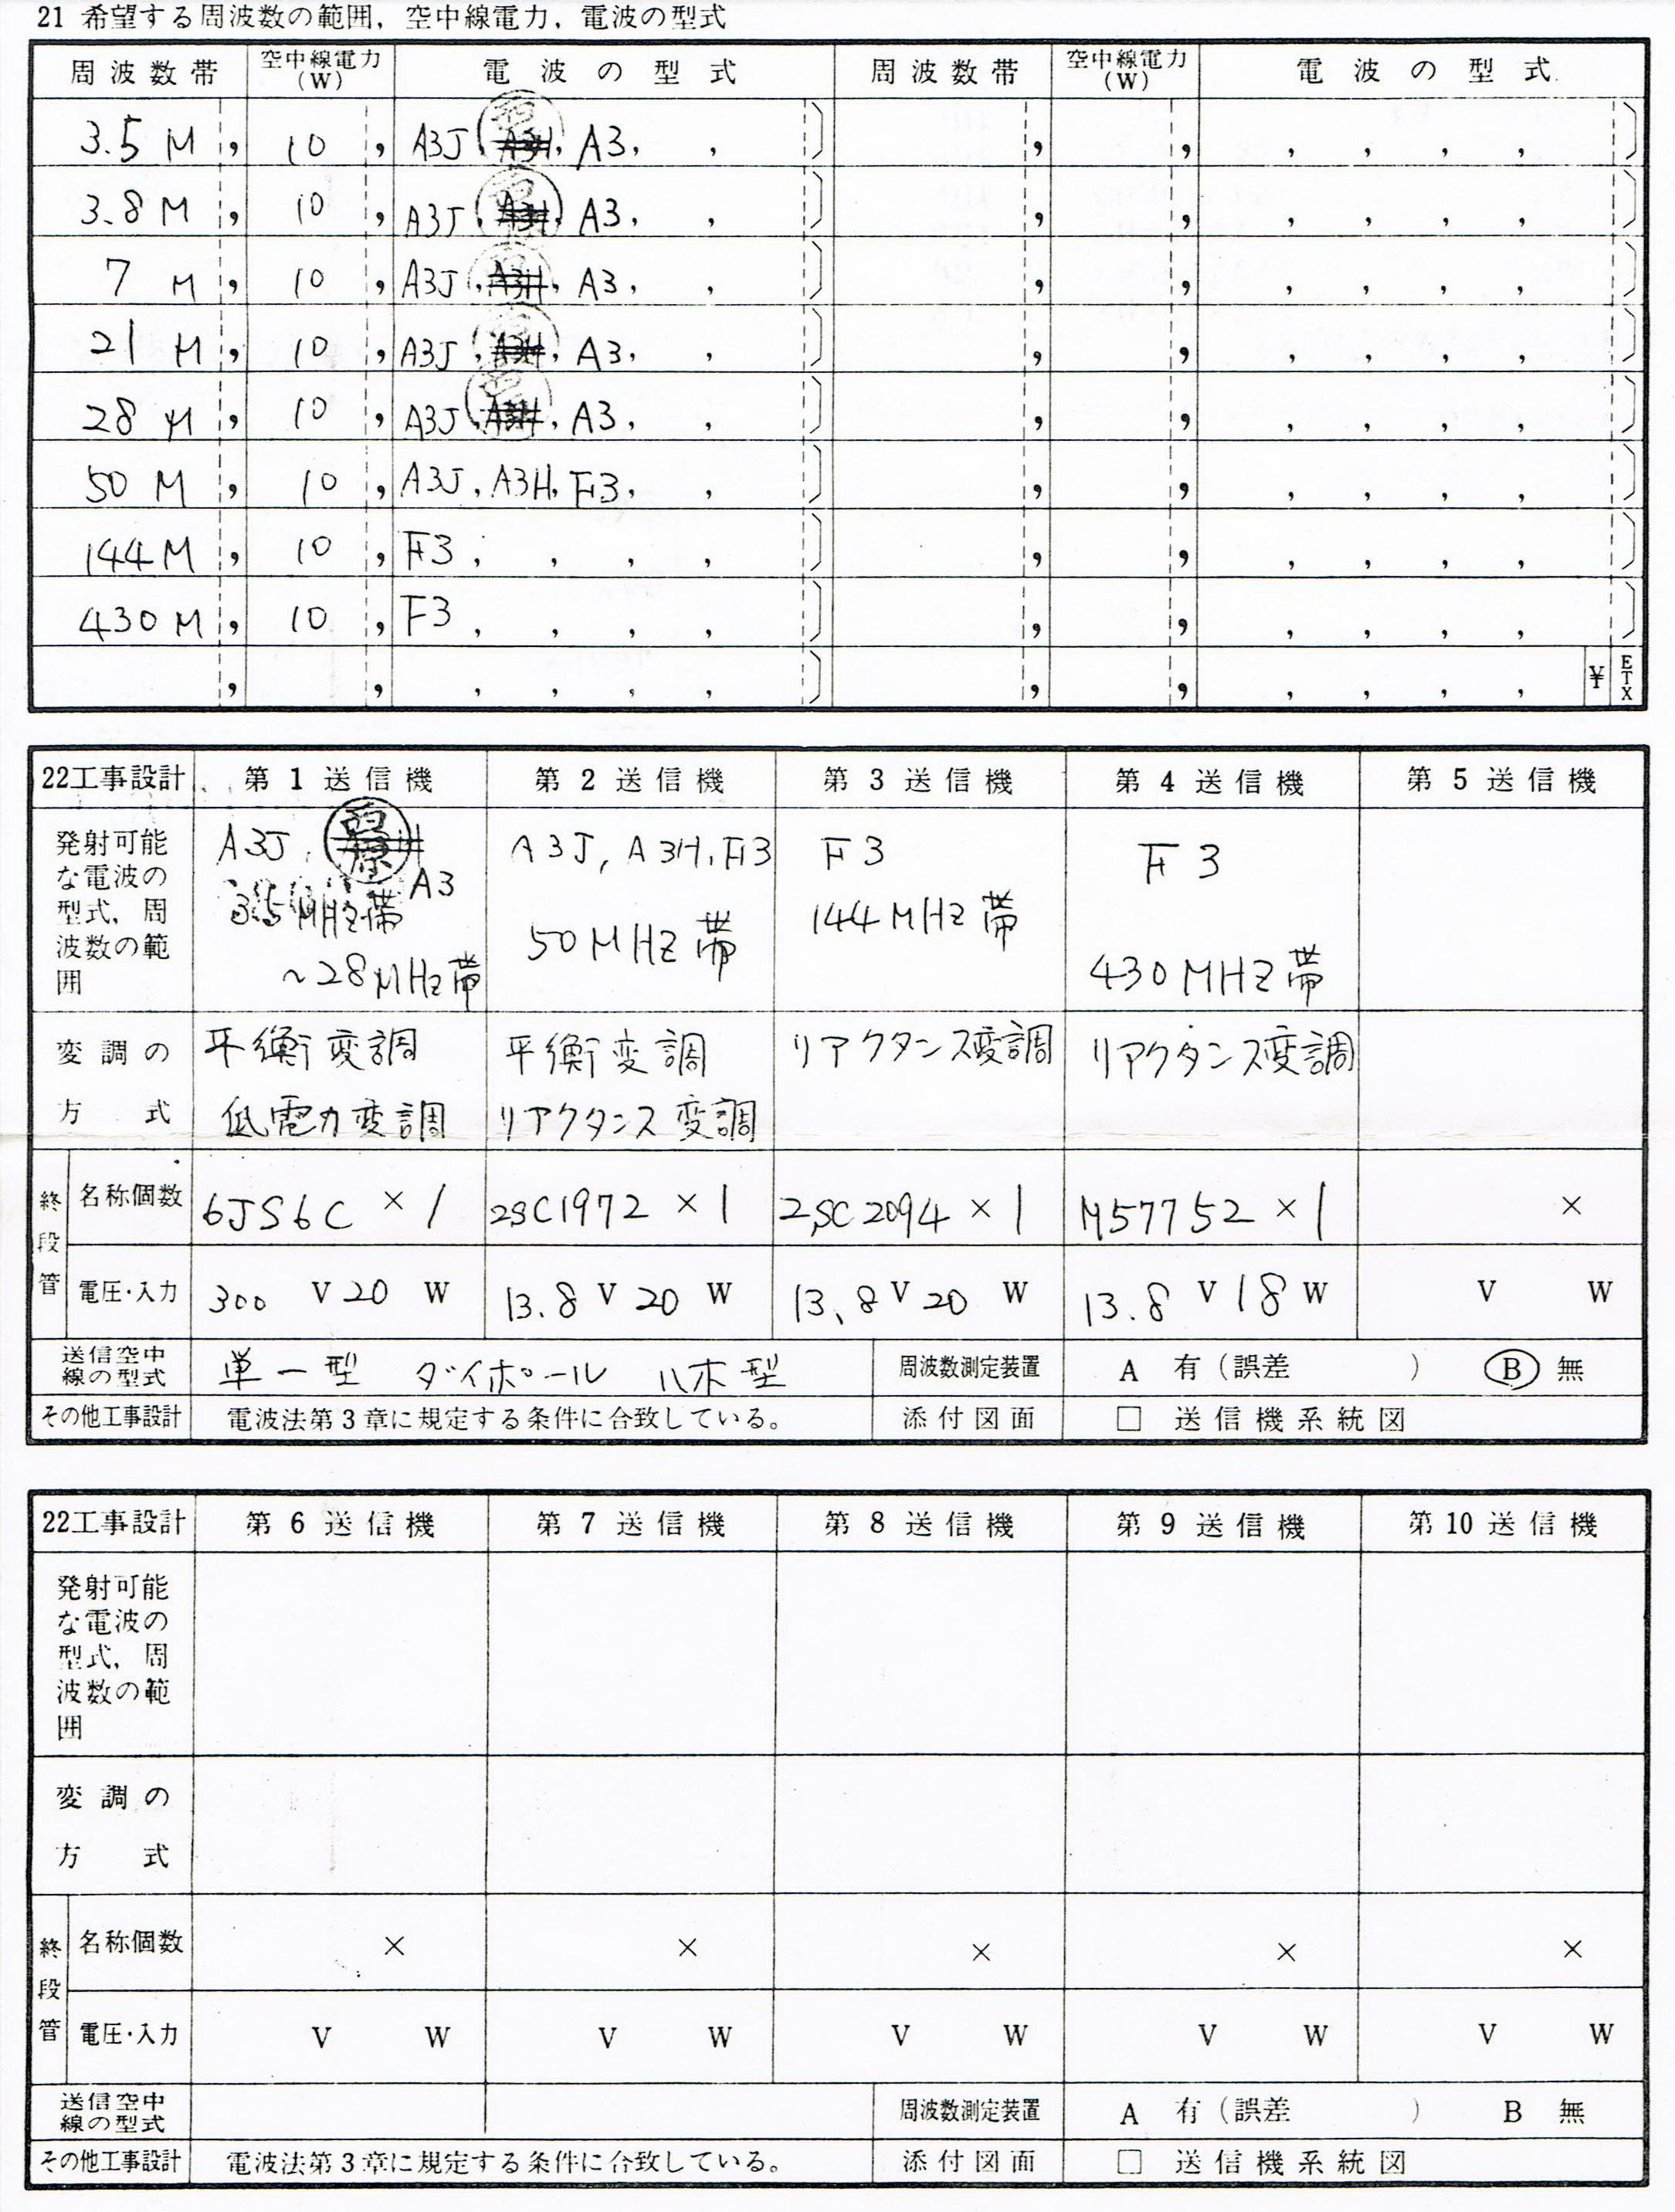 21 希望する周波数の範囲，空中線電力，電波の型式
周波数帯 空中線電力(W) 電波の型式 周波数帯 空中線電力(W) 電波の型式
3.5 M , 10 , A3J, A3H, A3, ,
3.8 M , 10 , A3J, A3H, A3, ,
7 M , 10 , A3J, A3H, A3, ,
21 M , 10 , A3J, A3H, A3, ,
28 M , 10 , A3J, A3H, A3, ,
50 M , 10 , A3J, A3H, F3, ,
144 M , 10 , F3, , , ,
430 M , 10 , F3, , , ,
¥ ETX
22工事設計 第1送信機 第2送信機 第3送信機 第4送信機 第5送信機
発射可能な電波の型式，周波数の範囲
A3J, A3H A3
3.5MHz帯
~28MHz帯
A3J, A3H, F3
50MHz帯
F3
144MHz帯
F3
430MHz帯
変調の方式
平衡変調
低電力変調
平衡変調
リアクタンス変調
リアクタンス変調
リアクタンス変調
終段管
名称個数 6JS6C × 1 2SC1972 × 1 2SC2094 × 1 M57752 × 1 ×
電圧・入力 300 V 20 W 13.8 V 20 W 13.8 V 20 W 13.8 V 18 W V W
送信空中線の型式 単一型 ダイポール 八木型 周波数測定装置 A 有（誤差 ） B 無
その他工事設計 電波法第3章に規定する条件に合致している。 添付図面 □ 送信機系統図
22工事設計 第6送信機 第7送信機 第8送信機 第9送信機 第10送信機
発射可能な電波の型式，周波数の範囲
変調の方式
終段管
名称個数 × × × × ×
電圧・入力 V W V W V W V W V W
送信空中線の型式 周波数測定装置 A 有（誤差 ） B 無
その他工事設計 電波法第3章に規定する条件に合致している。 添付図面 □ 送信機系統図